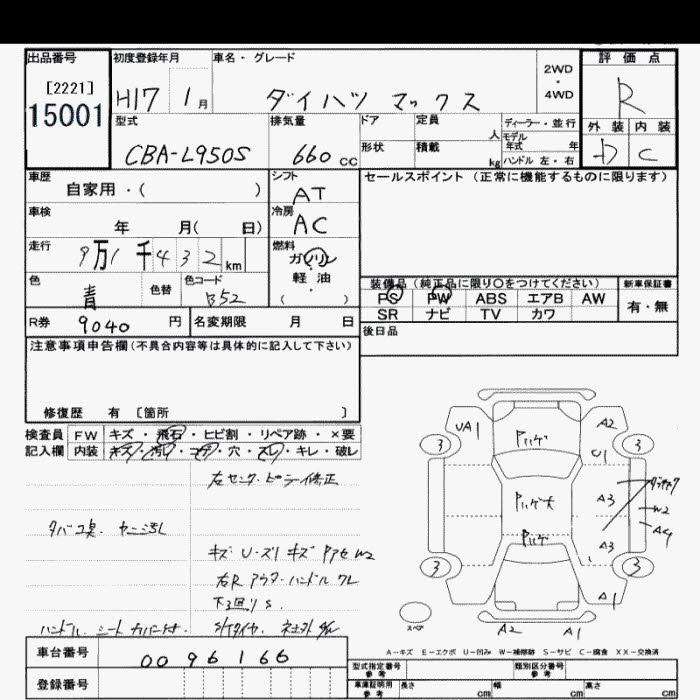 出品番号
[2221]
15001
初度登録年月
H17 1月
車名・グレード
ダイハツ マックス
2WD
・
4WD
評価点
R
型式
CBA-L950S
排気量
660 cc
ドア
定員
人
ディーラー・並行
モデル
年式 年
形状
積載
kg
ハンドル 左・右
外装 内装
C
車歴
自家用・( )
シフト
AT
セールスポイント (正常に機能するものに限ります)
車検
年 月( 日)
冷房
AC
走行
9万1千432km
燃料
ガソリン
軽油
( )
色
青
色替
色コード
B52
装備品(純正品に限り○をつけてください)
新車保証書
PS PW ABS エアB AW
有・無
SR ナビ TV カワ
R券
9040円
名変期限 月 日
後日品
注意事項申告欄(不具合内容等は具体的に記入して下さい)
修復歴 有 〔箇所 〕
検査員
記入欄
FW キズ・飛石・ヒビ割・リペア跡・×要
内装 キズ・汚レ・コゲ・穴・スレ・キレ・破レ
左センターピラー修正
タバコ臭・ヤニ汚レ
キズ U・スリキズ
W2
右R アウターハンドル ワレ
下廻りS
ハンドル・シートカバー付
スタイヤ
UA1
ハゲ
A2
3
3
U1
ハゲ大
A3
W2
A4
ハゲ
A3
3
3
A1
スペア
A2
A1
A-キズ E-エクボ U-凹み W-補修跡 S-サビ C-腐食 XX-交換済
車台番号
0096166
登録番号
型式指定番号
参考
類別区分番号
参考
車庫証明用
参考
長さ cm
幅 cm
高さ cm